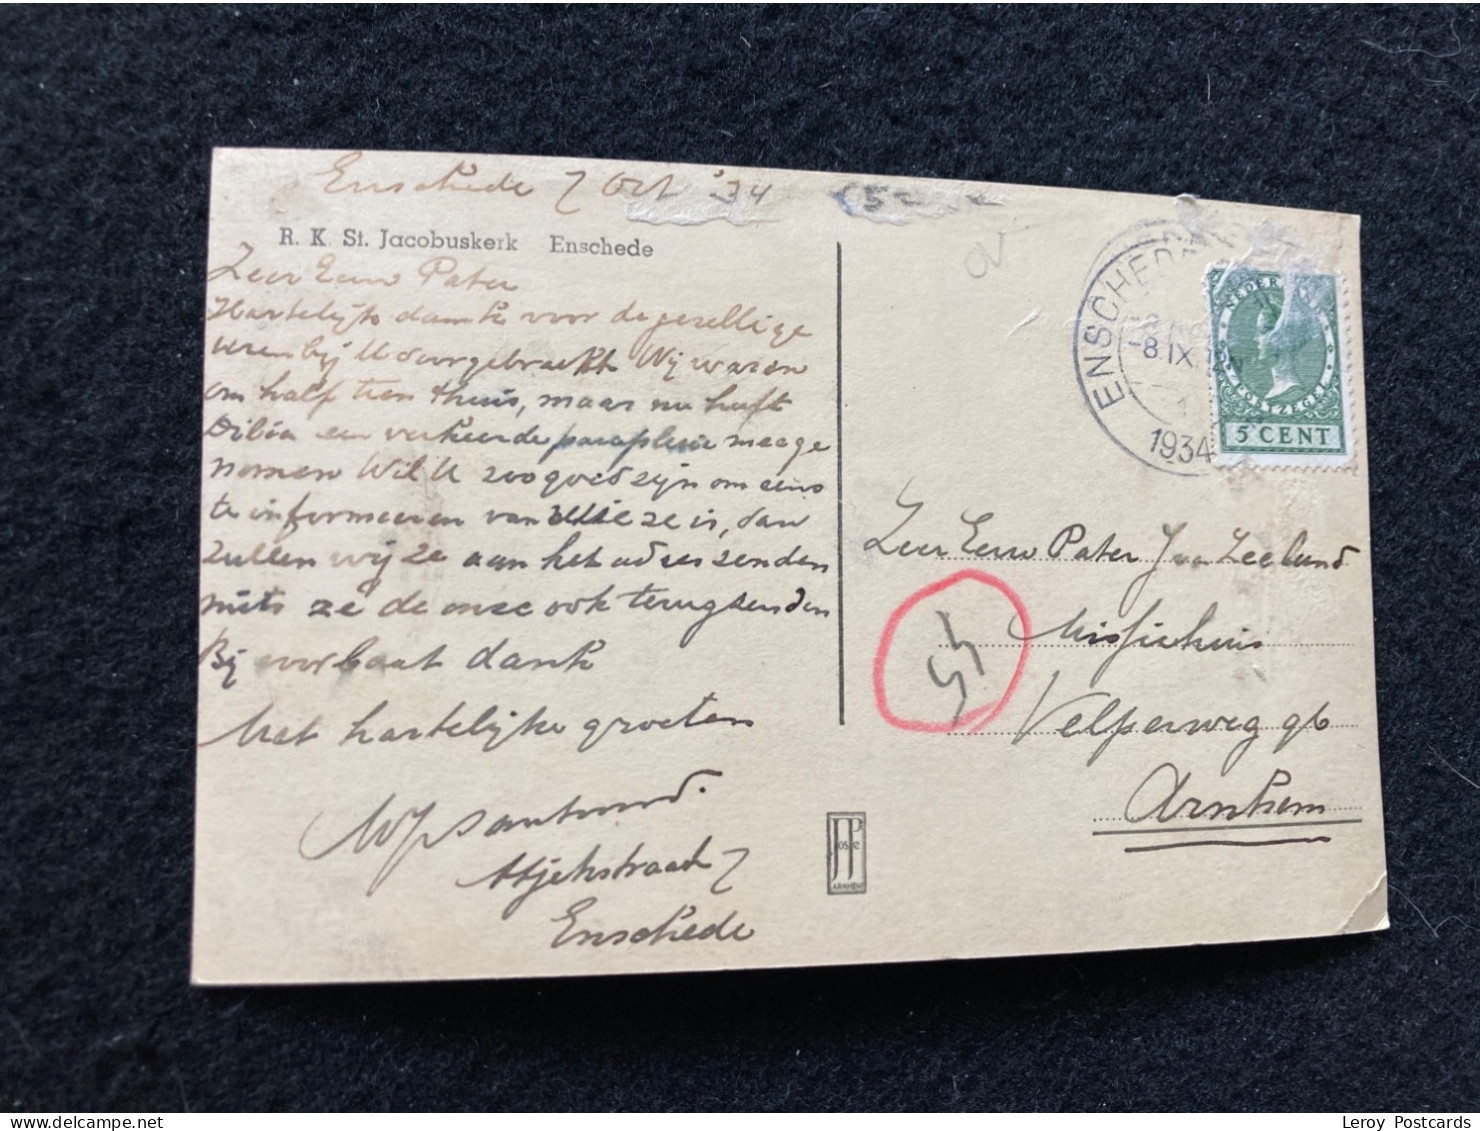 Enschede 7 Oct '34
R. K. St. Jacobuskerk Enschede
Zeer Eerw Pater
Hartelijk dank voor de gezellige
uren bij U doorgebracht Wij waren
om half tien thuis, maar nu heeft
een verkeerde parapluie meege
nomen Wil U zoo goed zijn om eens
te informeeren van wie ze is, dan
zullen wij ze aan het adres zenden
mits ze de onze ook terugzenden
Bij voorbaat dank
Met hartelijke groeten
7
Enschede
ENSCHEDE
-8 IX
1
1934
NEDERLAND
POSTZEGEL
5 CENT
Zeer Eerw Pater J van Zeeland
Missiehuis
Velperweg 96
Arnhem
JosPe
ARNHEM
Leroy Postcards